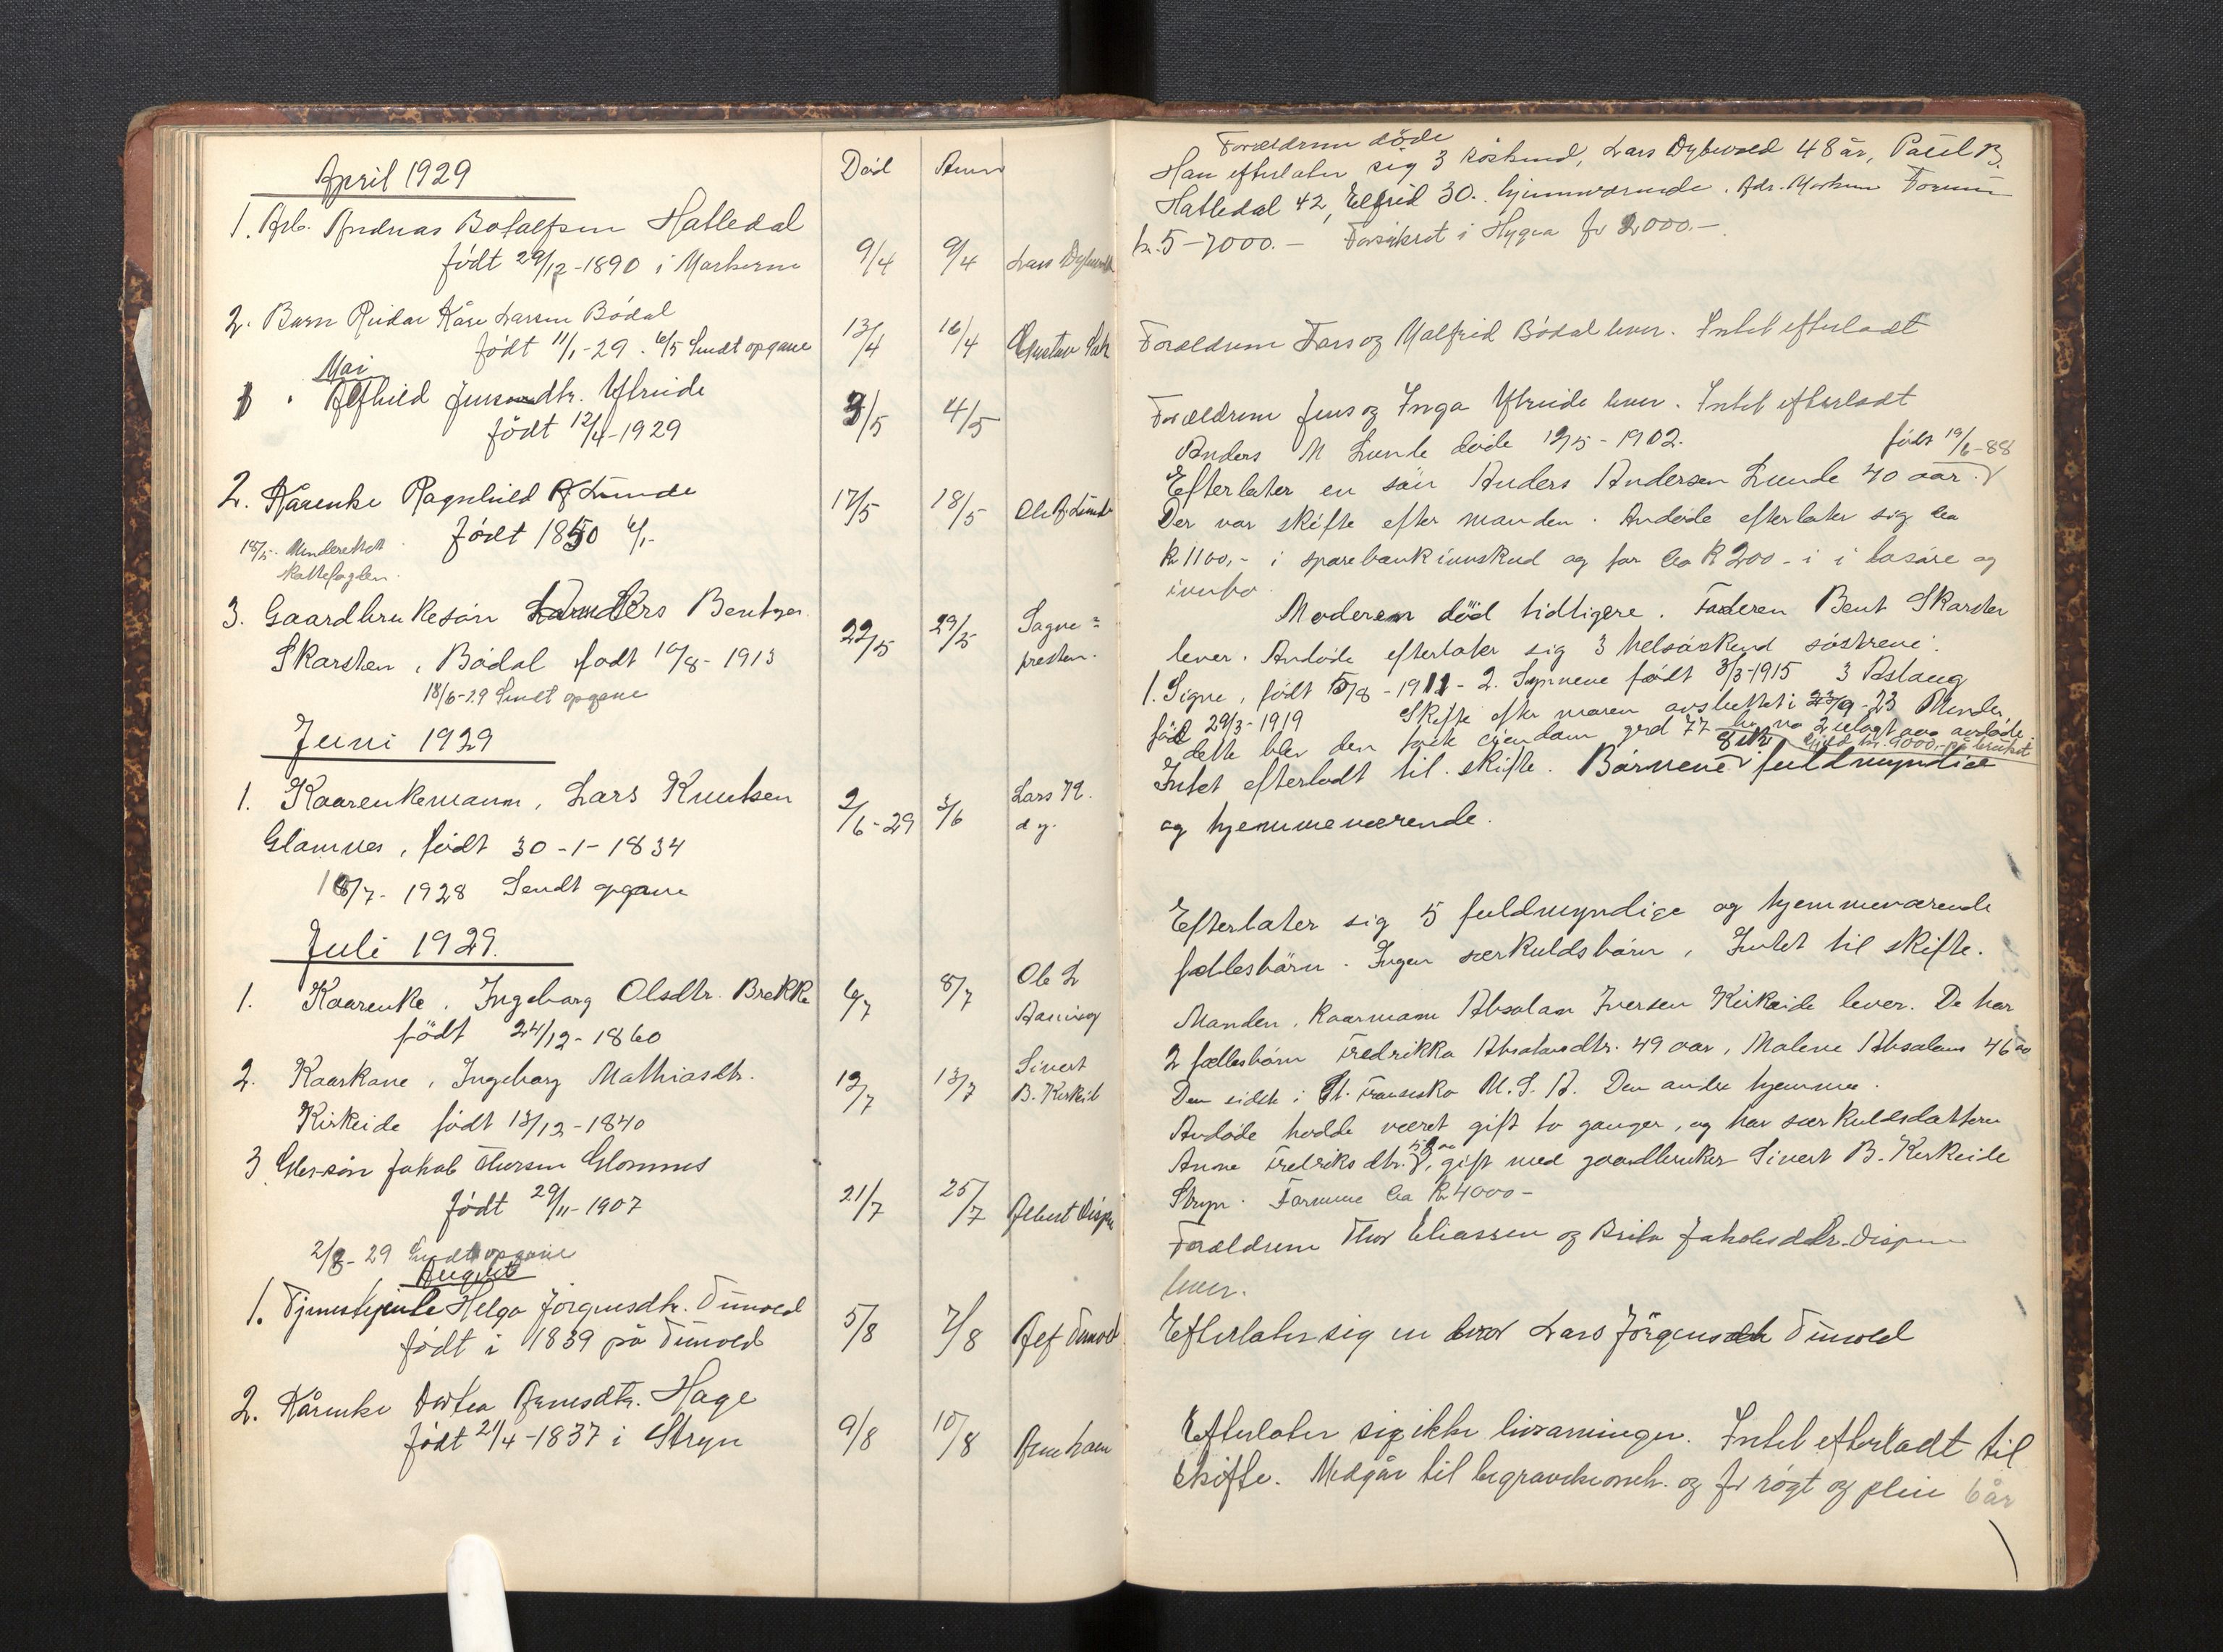 April 1929
Død
1. Arb. Andreas Hatledal
født 29/12-1890 i Markerne
9/4
9/4
Lars Dybwad
2. Barn Reidar Kåre Larsen Bødal
født 11/1-29. 6/5 Sendt opgave
13/4
16/4
Gustav
Mai
1. Alfhild Jensdtr. Ytreide
født 12/4-1929
3/5
4/5
2. Kårenke Ragnhild A Lunde
Født 1850 6/1-
18/5- Underrettet
skattefogden.
17/5
18/5
Ole A. Lunde
3. Gaardbrukesøn Anders Bentsen
Skarsten, Bødal født 10/8-1913
18/6-29 Sendt opgave
22/5
29/5
Sogne=
presten.
Juni 1929
1. Kaarenkemann, Lars Knutsen
Glomnes, født 30-1-1834
18/7-1928 Sendt opgave
2/6-29
3/6
Lars
d.y.
Juli 1929.
1. Kaarenke, Ingeborg Olsdtr. Brekke
født 24/12-1860
6/7
8/7
Ole L
2. Kaarkone, Ingeborg Mathiasdtr.
Kirkeide født 13/12-1840
12/7
13/7
Sivert
B. Kirkeid
3 søn Jakob Thorsen Glomnes
født 29/11-1907
2/8-29 Sendt opgave
21/7
25/7
Albert
August
1. Tjenestejente Helga Jørgensdtr. Tunold
født i 1839 på Tunold
5/8
7/8
Alf Tunold
2. Kårenke Dortea Arnesdtr. Hage
født 21/4-1837 i Stryn
9/8
10/8
Forældrene døde
Han efterlater sig 3 søskend, Lars Dybwad 48 år, Paul B.
Hatledal 42, Elfrid 30. hjemmværende. Adr. Markene Formue
kr. 5-7000.- Forsikret i Hygea for 2000.-.
Forældrene Lars og Malfrid Bødal lever. Intet efterladt
Forældrene Jens og Inga Ytreide lever. Intet efterladt
Anders M Lunde døde 12/5-1902. født 19/6-88
Efterlater en søn Anders Andersen Lunde 40 aar.
Der var skifte efter manden. Avdøde efterlater sig ca
kr 1100,- i sparebankinnskud og for ca kr 200- i løsøre og
innbo.
Moderen død tidligere. Faderen Bent Skarsten
lever. Avdøde efterlater sig 3 helsøskend søstrene:
1. Signe, født 15/8-1911- 2. Synneve født 3/3-1915 3 Aslaug
født 29/3-1919 Skifte efter moren avsluttet i 23/9-23 Under
dette blev den faste eiendom grd 77 br no 2 utlagt avdøde.
Gjeld kr. 4000,- på bruket
Intet efterladt til skifte. Børnene 8 stk fuldmyndige
og hjemmeværende.
Efterlater sig 5 fuldmyndige og hjemmeværende
fællesbørn. Ingen særkuldsbørn, Intet til skifte.
Manden, Kaarmann Absalon Iversen Kirkeide lever. De har
2 fællesbørn Fredrikka Absalonsdtr. 49 aar, Malene Absalons 46 aar
Den sidste i St. Fransisko U.S.A. Den andre hjemme.
Avdøde hadde været gift to ganger, og har særkuldsdatteren
Anne Fredriksdtr., gift med gaardbruker Sivert B. Kirkeide
Stryn. Formue ca kr 4000-
Forældrene Thor Eliassen og Brita Jakobsdtr.
lever.
Efterlater sig en bror Lars Jörgensen Tunold
Efterlater sig ikke livsarvinger. Intet efterladt til
skifte. Medgår til begravelsesomk. og for røgt og pleie 6 år